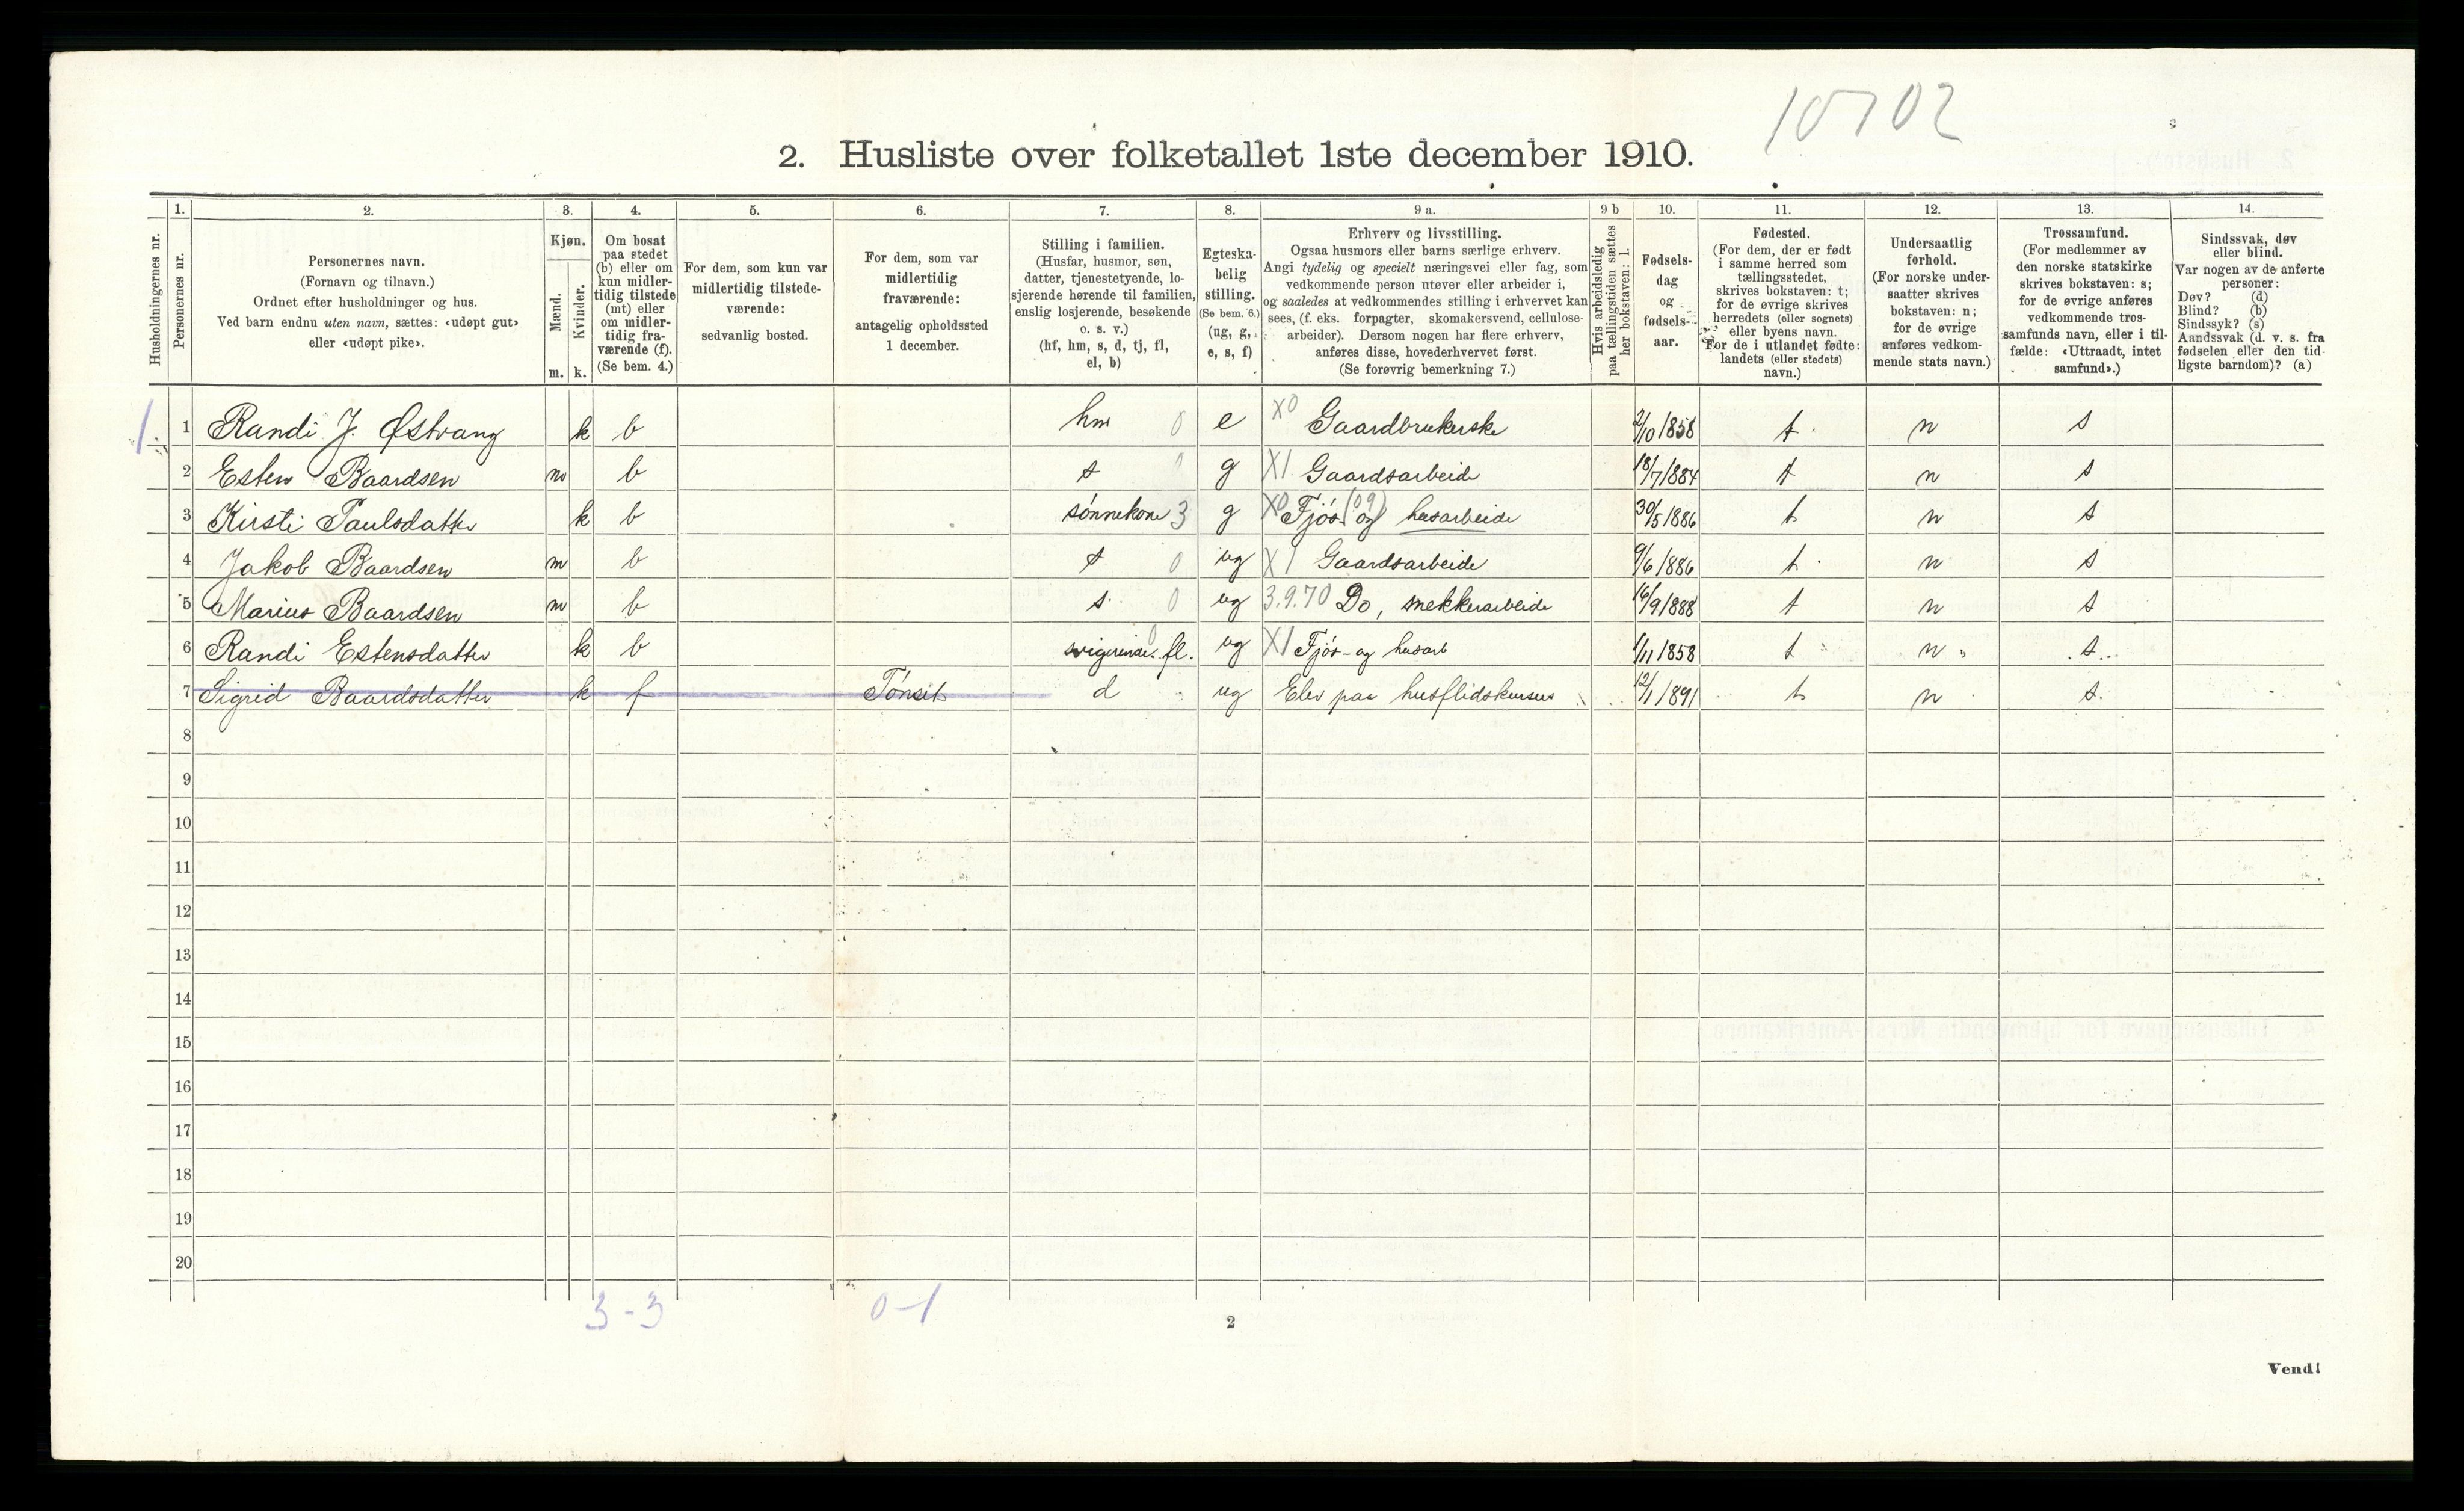 10702
2. Husliste over folketallet 1ste december 1910.
Husholdningernes nr.
1. Personernes nr.
2. Personernes navn. (Fornavn og tilnavn.) Ordnet efter husholdninger og hus. Ved barn endnu uten navn, sættes: «udøpt gut» eller «udøpt pike».
3. Kjøn. Mænd. m. Kvinder. k.
4. Om bosat paa stedet (b) eller om kun midler-tidig tilstede (mt) eller om midler-tidig fra-værende (f). (Se bem. 4.)
5. For dem, som kun var midlertidig tilstede-værende: sedvanlig bosted.
6. For dem, som var midlertidig fraværende: antagelig opholdssted 1 december.
7. Stilling i familien. (Husfar, husmor, søn, datter, tjenestetyende, lo-sjerende hørende til familien, enslig losjerende, besøkende o. s. v.) (hf, hm, s, d, tj, fl, el, b)
8. Egteska-belig stilling. (Se bem. 6.) (ug, g, e, s, f)
9 a. Erhverv og livsstilling. Ogsaa husmors eller barns særlige erhverv. Angi tydelig og specielt næringsvei eller fag, som vedkommende person utøver eller arbeider i, og saaledes at vedkommendes stilling i erhvervet kan sees, (f. eks. forpagter, skomakersvend, cellulose-arbeider). Dersom nogen har flere erhverv, anføres disse, hovederhvervet først. (Se forøvrig bemerkning 7.)
9 b Hvis arbeidsledig paa tællingstiden sættes her bokstaven: l.
10. Fødsels-dag og fødsels-aar.
11. Fødested. (For dem, der er født i samme herred som tællingsstedet, skrives bokstaven: t; for de øvrige skrives herredets (eller sognets) eller byens navn. For de i utlandet fødte: landets (eller stedets) navn.)
12. Undersaatlig forhold. (For norske under-saatter skrives bokstaven: n; for de øvrige anføres vedkom-mende stats navn.)
13. Trossamfund. (For medlemmer av den norske statskirke skrives bokstaven: s; for de øvrige anføres vedkommende tros-samfunds navn, eller i til-fælde: «Uttraadt, intet samfund».)
14. Sindssvak, døv eller blind. Var nogen av de anførte personer: Døv? (d) Blind? (b) Sindssyk? (s) Aandssvak (d. v. s. fra fødselen eller den tid-ligste barndom)? (a)
1 1 Randi J. Østvang k b hm 0 e X0 Gaardbrukerske 2/10 1858 t n s
2 Esten Baardsen m b s 0 g X1 Gaardsarbeide 18/7 1884 t n s
3 Kirsti Paulsdatter k b sønnekone 3 g X0 Fjøs (09) og husarbeide 30/5 1886 t n s
4 Jakob Baardsen m b s 0 ug X1 Gaardsarbeide 9/6 1886 t n s
5 Marius Baardsen m b s 0 ug 3.9.70 Do, snekkerarbeide 16/9 1888 t n s
6 Randi Estensdatter k b fl. 0 ug X1 Fjøs- og husarb 1/11 1858 t n s
7 Sigrid Baardsdatter k f Tönset d ug Elev paa husflidskursus 12/1 1891 t n s
8
9
10
11
12
13
14
15
16
17
18
19
20
3 - 3 0 - 1
2
Vend!